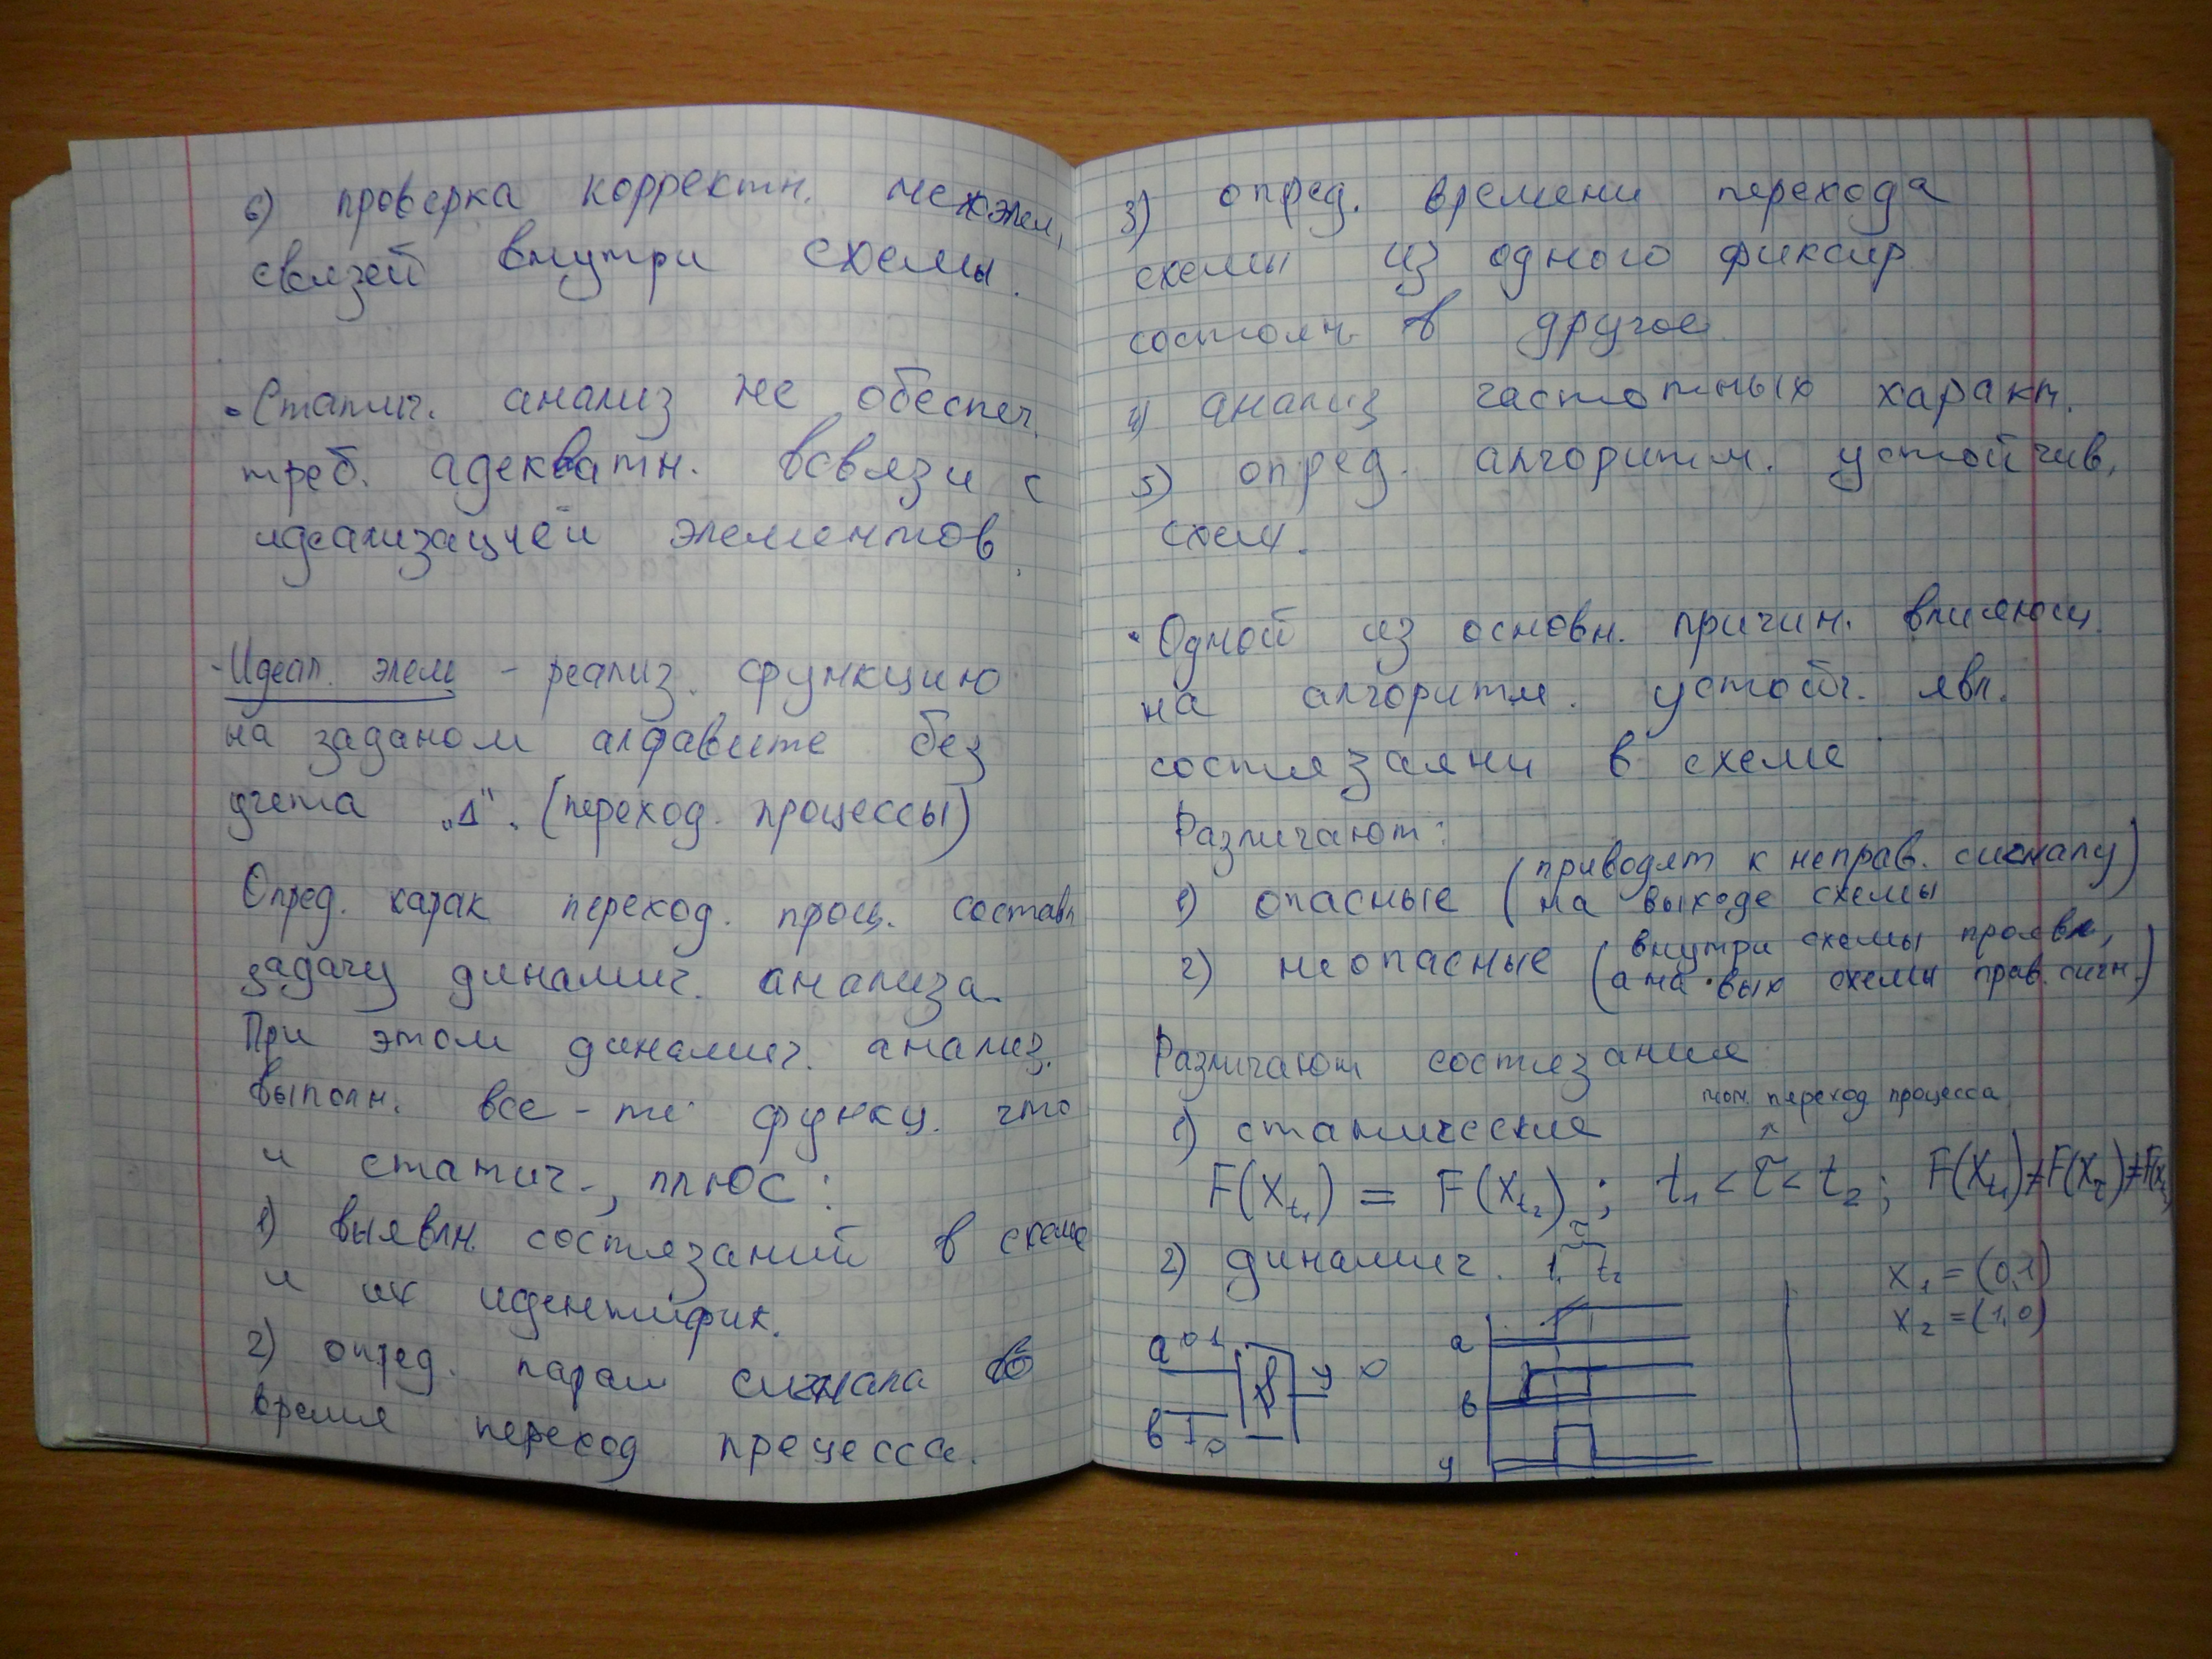 6) проверка корректн. межэлем,
связей внутри схемы.
• Статич. анализ не обеспеч.
треб. адекватн. всвязи с
идеализацией элементов.
- Идеал. элем - реализ. функцию
на заданом алфавите без
учета „Δ". (переход. процессы)
Опред. харак переход. проц. составл
задачу динамич. анализа.
При этом динамич. анализ.
выполн. все-те функц. что
и статич., плюс:
1) выявлн. состязаний в схеме
и их идентифик.
2) опред. парам сигнала во
время переход процесса.
3) опред. времени перехода
схемы из одного фиксир
состоян. в другое.
4) анализ частотных характ.
5) опред. алгоритм. устойчив,
схем.
• Одной из основн. причин. влияющ.
на алгоритм. устойч. явл.
состязаяни в схеме
Различают:
1) опасные (приводят к неправ. сигналу)
(на выходе схемы
2) неопасные (внутри схемы проявл,
(а на вых схемы прав. сигн.)
Различают состязания
мом. переход процесса
1) статические
F(X_t₁) = F(X_t₂); t₁ < τ < t₂; F(X_t₁) ≠ F(X_τ) ≠ F(X_t₂)
τ
2) динамич. t₁ t₂
x₁ = (0,1)
x₂ = (1,0)
a 01
& y 0
в 10
a
в
y